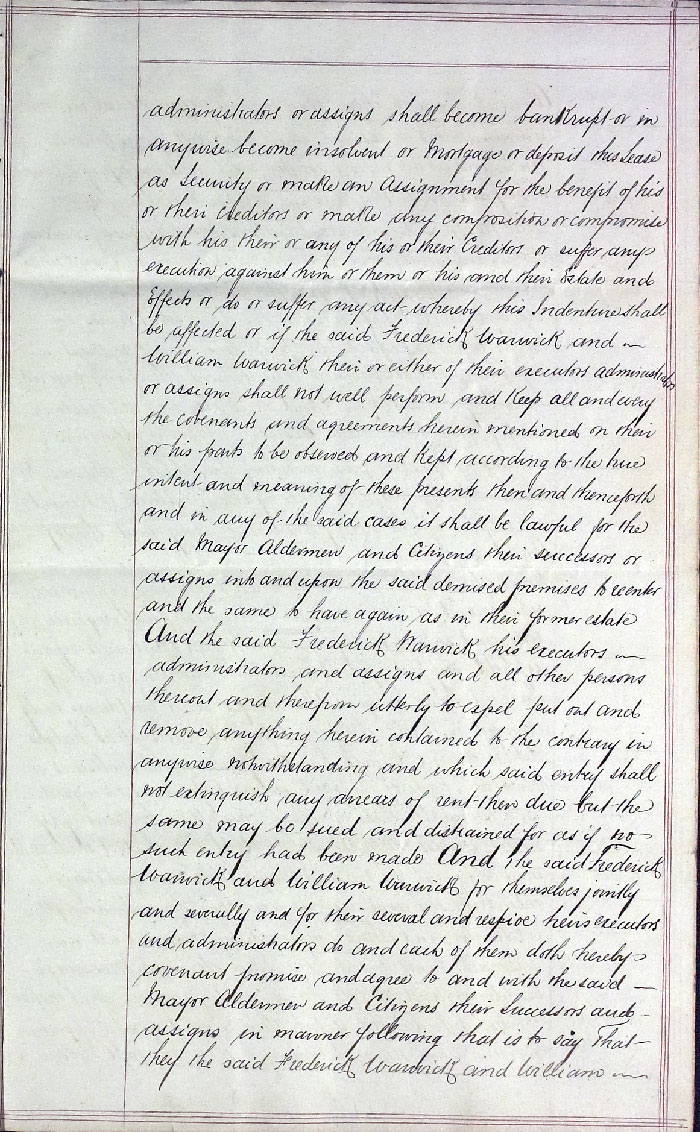 administrators or assigns shall become bankrupt or in
anywise become insolvent or Mortgage or deposit this Lease
as Security or make an Assignment for the benefit of his
or their Creditors or make any composition or compromise
with his their or any of his or their Creditors or suffer any
execution against him or them or his and their Estate and
Effects or do or suffer any act whereby this Indenture shall
be affected or if the said Frederick Warwick and
William Warwick their or either of their executors administrators
or assigns shall not well perform and Keep all and every
the covenants and agreements herein mentioned on their
or his parts to be observed and kept according to the true
intent and meaning of these presents then and thenceforth
and in any of the said cases it shall be lawful for the
said Mayor Aldermen and Citizens their successors or
assigns into and upon the said demised premises to reenter
and the same to have again as in their former estate
And the said Frederick Warwick his executors
administrators and assigns and all other persons
thereout and therefrom utterly to expel put out and
remove anything herein contained to the contrary in
anywise notwithstanding and which said entry shall
not extinguish any arrears of rent then due but the
same may be sued and distrained for as if no
such entry had been made And the said Frederick
Warwick and William Warwick for themselves jointly
and severally and for their several and respive heirs executors
and administrators do and each of them doth hereby
covenant promise and agree to and with the said
Mayor Aldermen and Citizens their Successors and
assigns in manner following that is to say That
they the said Frederick Warwick and William